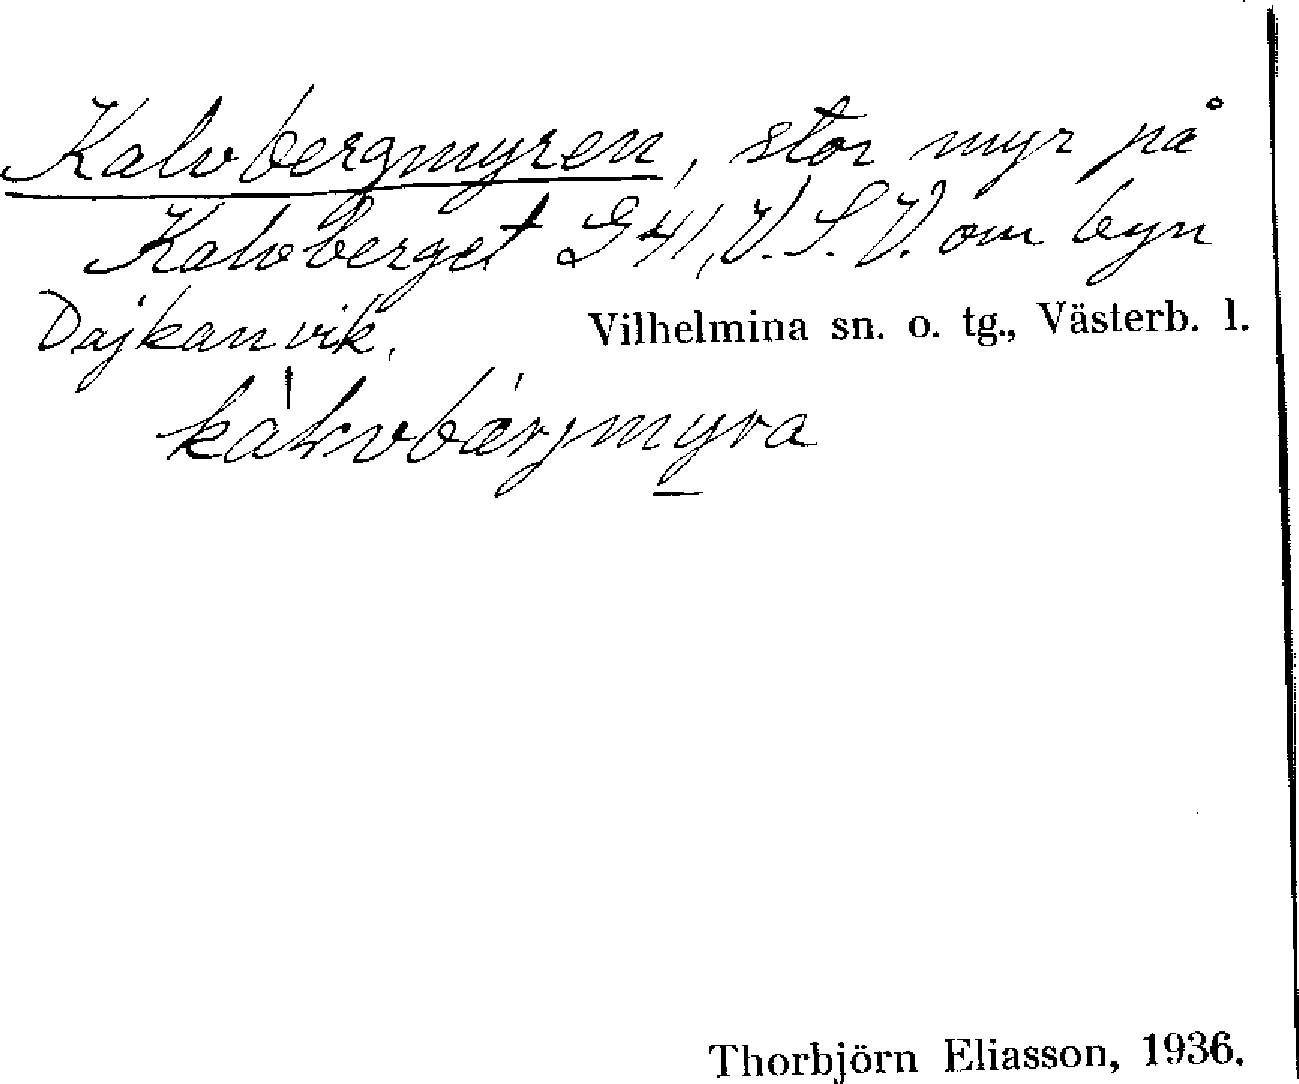 Kalvbergmyren, stor myr på
Kalvberget G41, V.S.V. om byn
Dajkanvik. Vilhelmina sn. o. tg., Västerb. l.
Thorbjörn Eliasson, 1936.